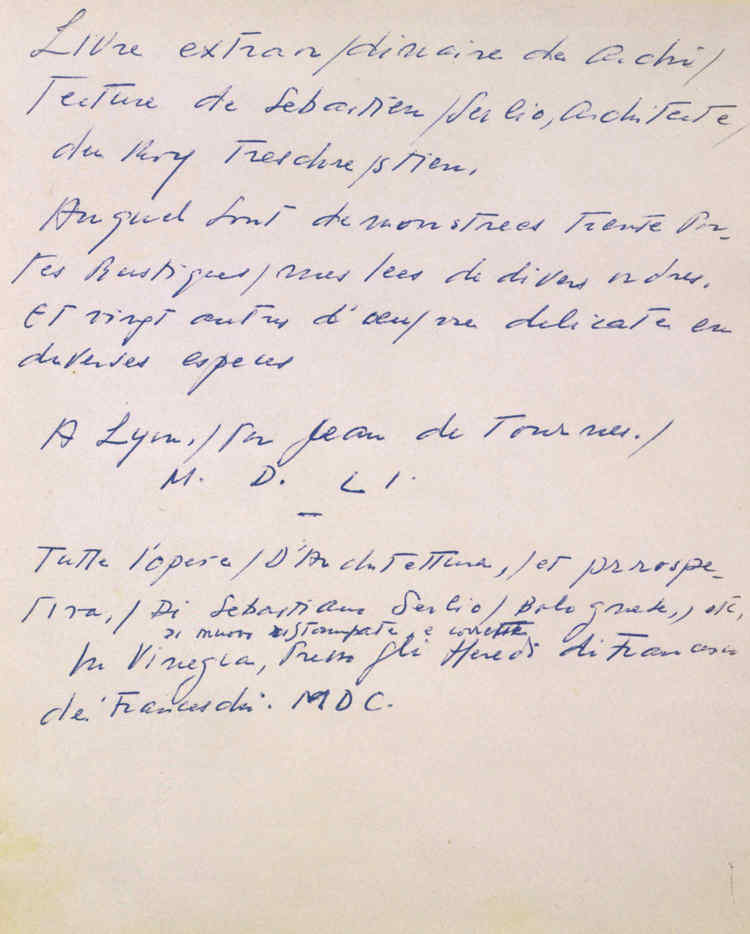 Livre extraor/dinaire de Archi/
tecture de Sebastien/Serlio, Architecte/
du Roy Treschre/stien.
Auquel sont demonstrees trente Por-
tes Rustiques/meslees de divers ordres.
Et vingt autres d'oeu/vre delicate en
diverses especes
A Lyon,/Par Jean de Tournes./
M. D. LI.
Tutte l'opere/D'Architettura,/et prrospe-
tiva,/Di Sebastiano Serlio/Bolognese,, etc,
di nuovo ristampate, e corrette
In Vinegia, Presso gli Heredi di Francesco
de' Franceschi. MDC.